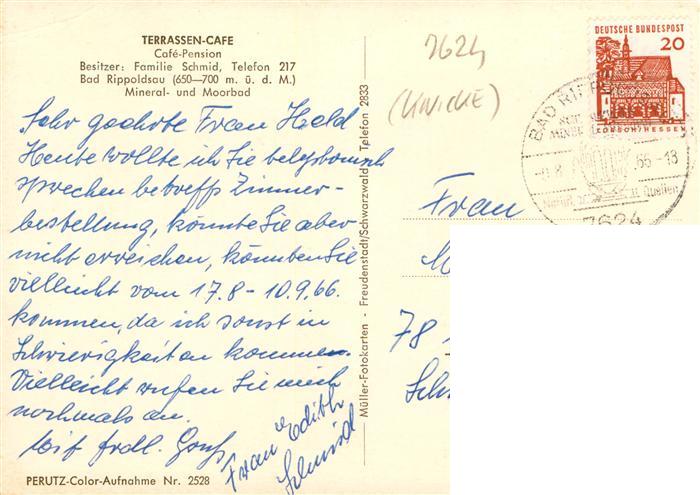 TERRASSEN-CAFE
Café-Pension
Besitzer: Familie Schmid, Telefon 217
Bad Rippoldsau (650—700 m. ü. d. M.)
Mineral- und Moorbad
Sehr geehrte Frau Held
Heute wollte ich Sie telephonisch
sprechen betreff Zimmer-
bestellung, könnte Sie aber
nicht erreichen, könnten Sie
vielleicht vom 17.8 - 10.9.66.
kommen, da ich sonst in
Schwierigkeiten komme.
Vielleicht rufen Sie mich
nochmals an.
Mit frdl. Gruß
Frau Edith
Schmid
PERUTZ-Color-Aufnahme Nr. 2528
Müller-Fotokarten - Freudenstadt/Schwarzwald Telefon 2833
7624
(KNICKE)
DEUTSCHE BUNDESPOST
20
LORSCH/HESSEN
BAD RIPP
66-18
7624
Frau
78